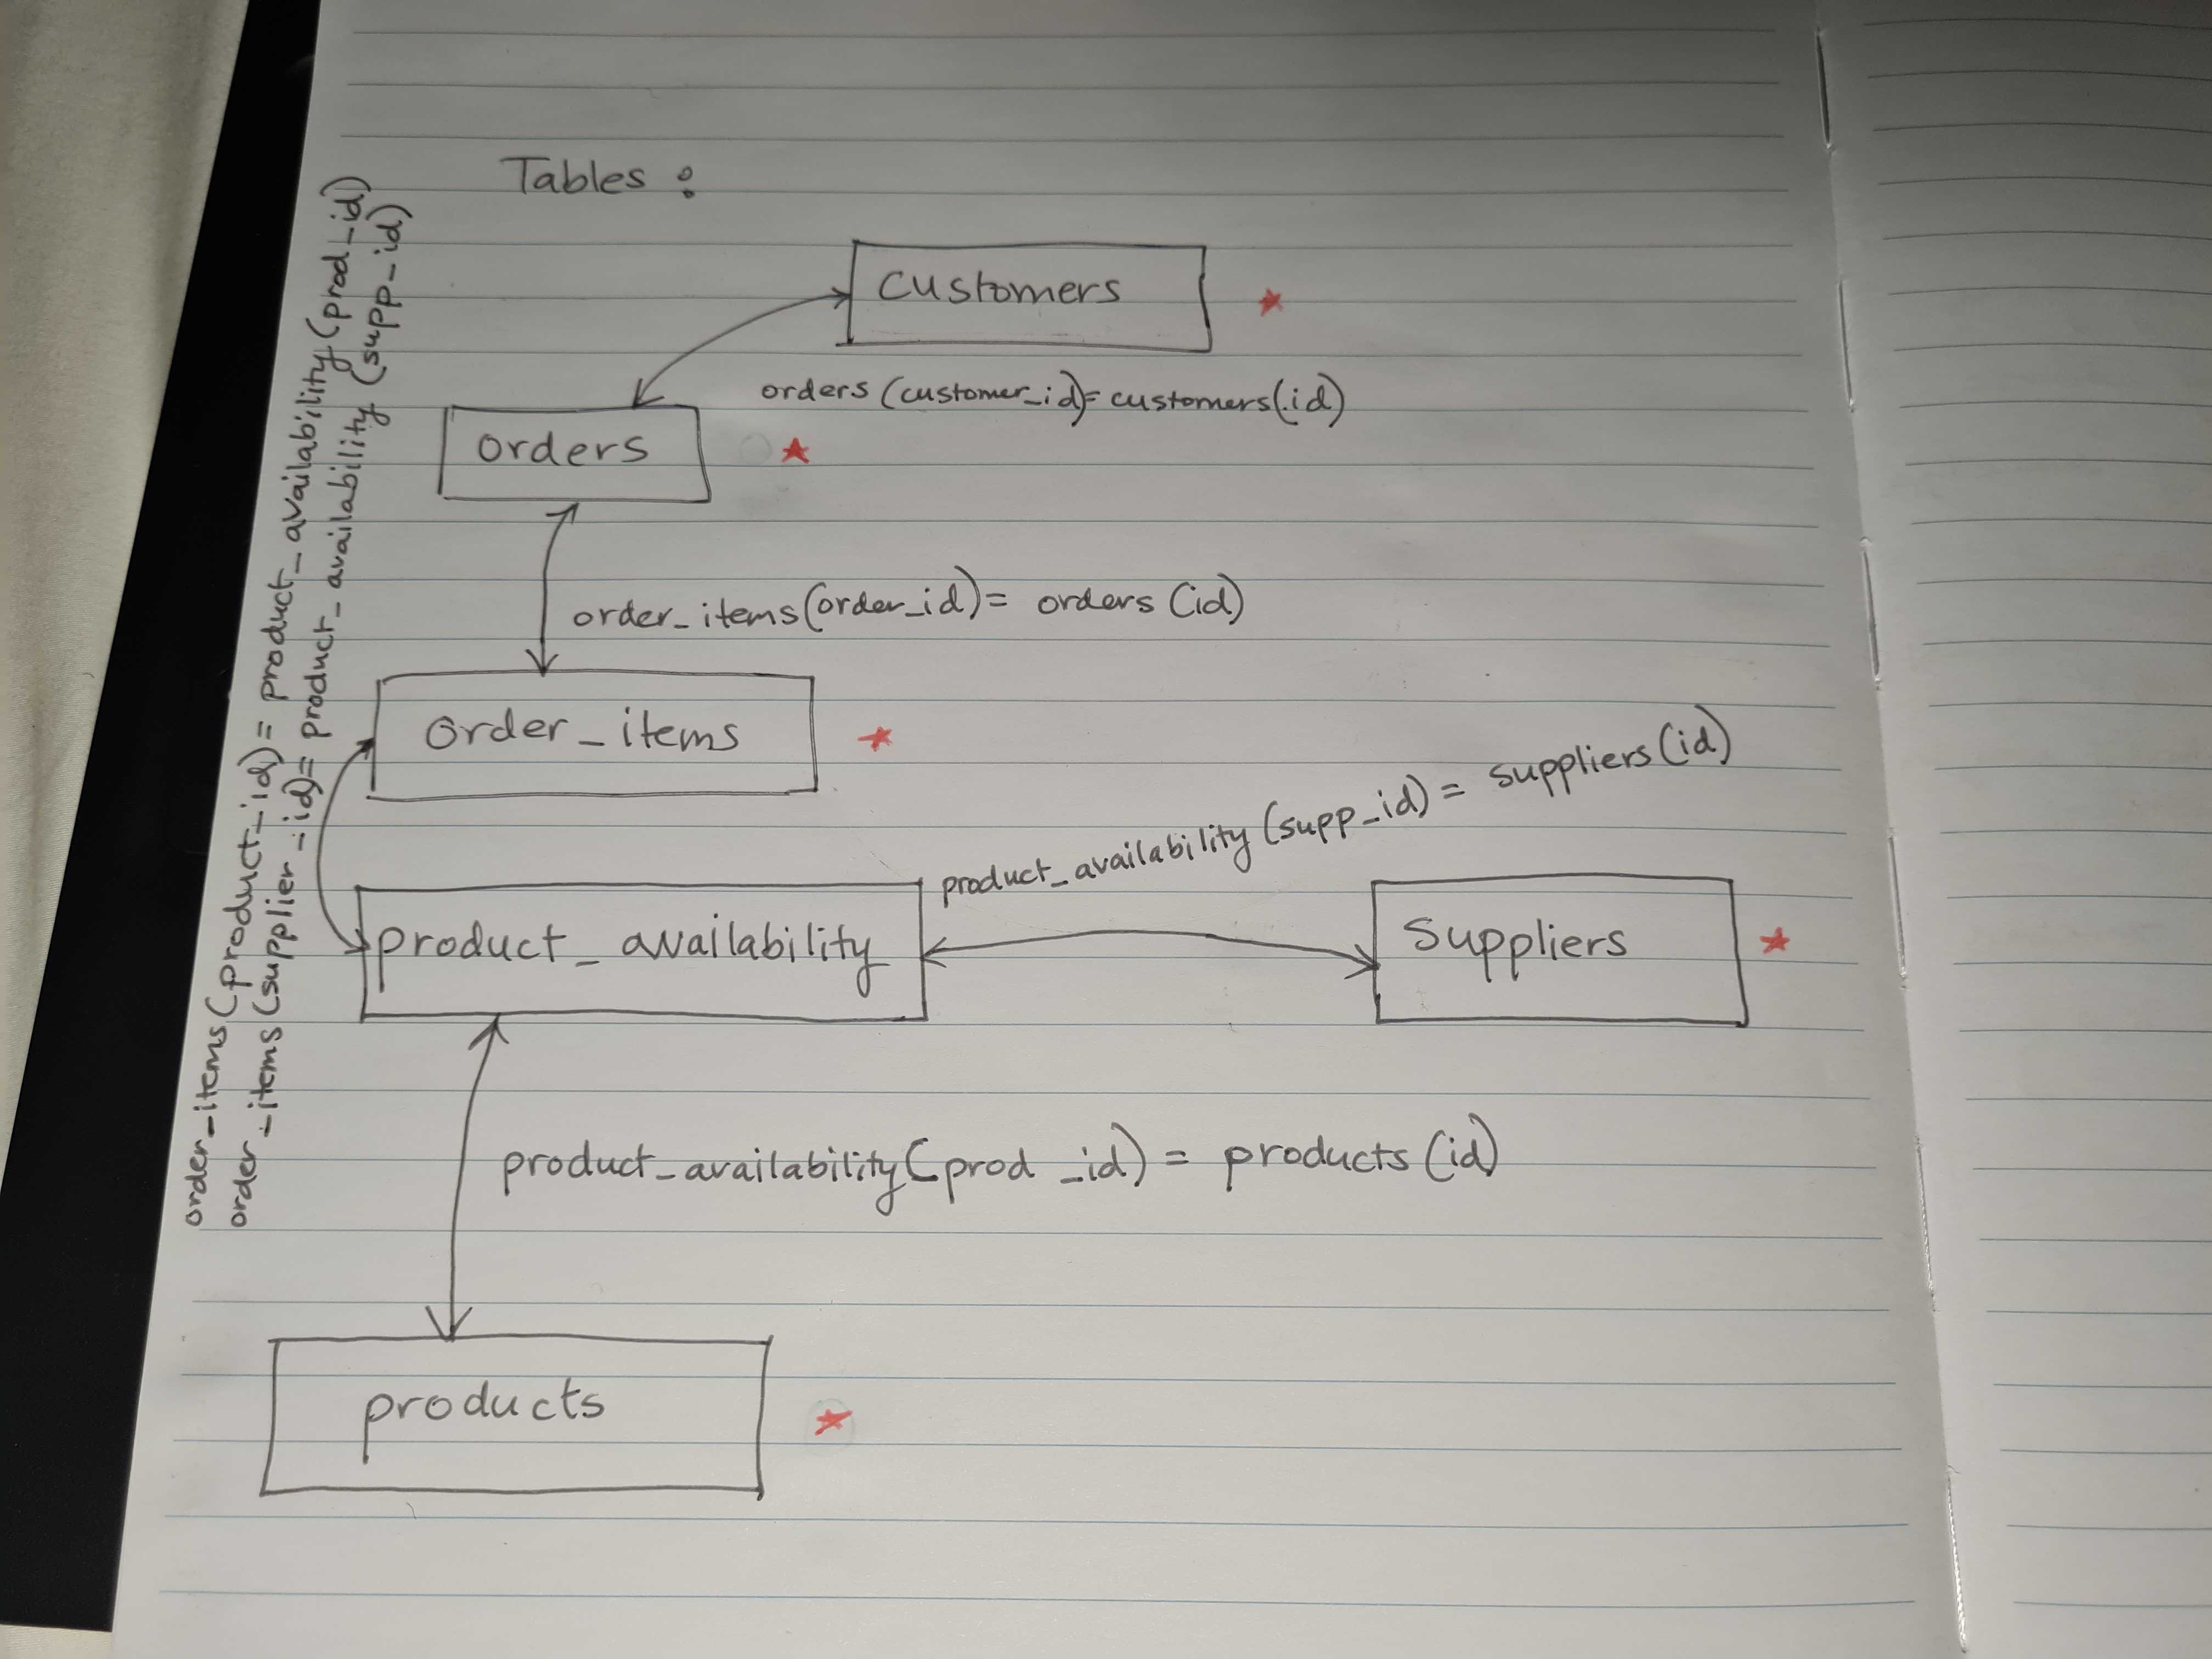 Tables :
customers
orders (customer_id)= customers(id)
orders
order_items(order_id)= orders (id)
order_items
order_items(product_id)= product_availability(prod_id)
order_items(supplier_id)= product_availability (supp_id)
product_availability (supp_id) = suppliers (id)
product_availability
Suppliers
product_availability(prod_id) = products (id)
products